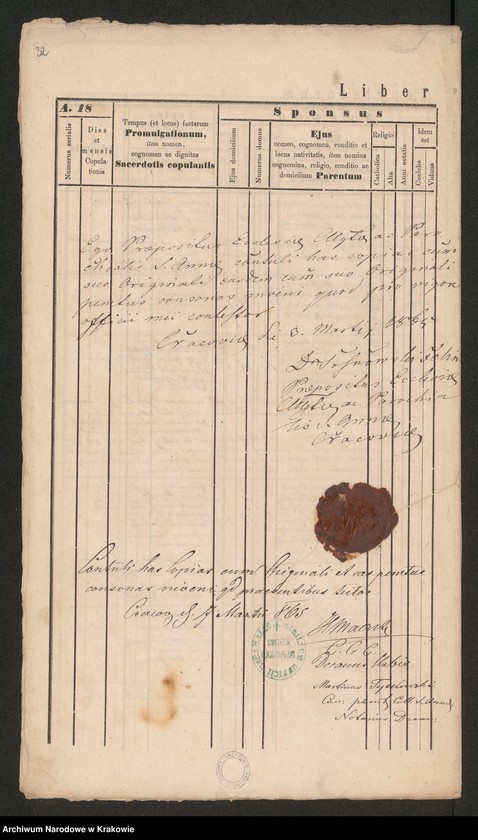 32
Liber
A. 18
Sponsus
Numerus serialis
Dies
et
mensis
Copula-
tionis
Tempus (et locus) factarum
Promulgationum,
item nomen,
cognomen ac dignitas
Sacerdotis copulantis
Ejus domicilium
Numerus domus
Ejus
nomen, cognomen, conditio et
locus nativitatis, item nomina
cognomina, religio, conditio ac
domicilium Parentum
Religio
Catholica
Alia
Anni aetatis
Idem
est
Coelebs
Viduus
Ego Praepositus Ecclesiae ac Paro
chialis S. Annae contuli has copias cum
suo Originali easdem cum suo Originali
penitus consonas inveni quod pro vigore
officii mei contestor
Cracoviae die 3. Martij 1865
Dr
Praepositus Ecclesiae
ac Parochia
lis S. Annae
Cracoviae
Contuli has Copias cum Originali et eas penitus
consonas inveni qd praesentibus testor
Cracov. d. Martii 865
Decanus
Martinus
Can. Coll. S. Annae
Notarius Decan.
Archiwum Narodowe w Krakowie